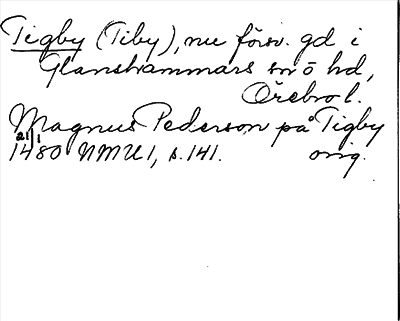 Tigby (Tiby), nu försv. gd i
Glanshammars sn o hd,
Örebro l.
Magnus Pederson på Tigby
21/1
1480 NMU 1, s. 141. orig.